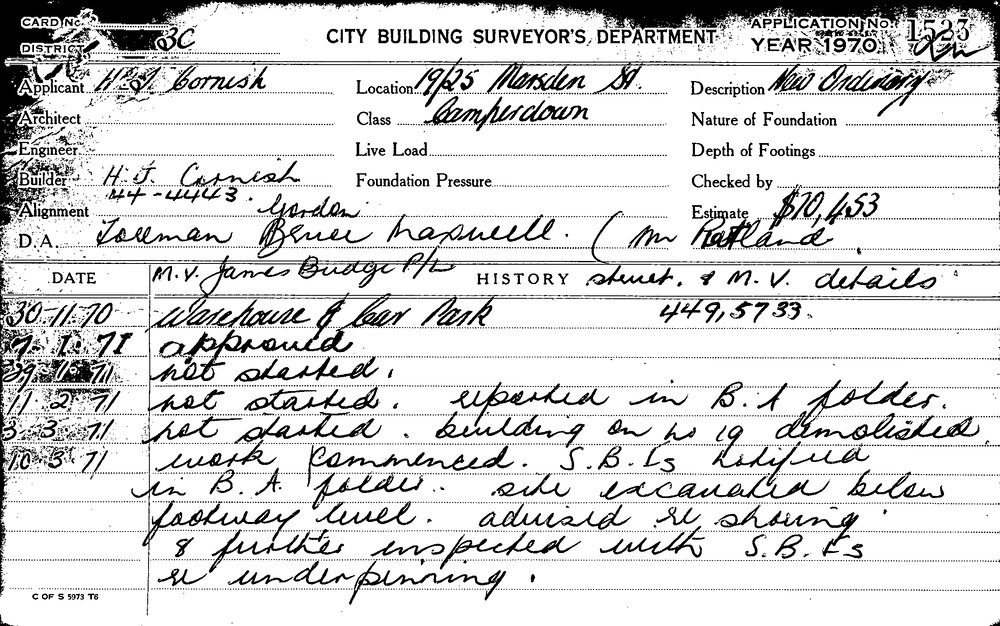 CARD No.
DISTRICT 3C
CITY BUILDING SURVEYOR'S DEPARTMENT
APPLICATION No. 1523
YEAR 1970
Applicant H. J. Cornish
Location 19/25 Marsden St.
Description New Ordinary
Architect
Class Camperdown
Nature of Foundation
Engineer
Live Load
Depth of Footings
Builder H. J. Cornish
Foundation Pressure
Checked by
44-4443
Alignment
Gordon
Estimate $70,453
D.A. Tolman Bruce Maxwell. (Mr Rutland
DATE
M.V. James Budge P/L
HISTORY
struct. & M.V. details
30-11-70 Warehouse & Car Park 449,5733.
7-1-71 approved
29 1 71 not started.
11 2 71 not started. reported in B.A folder.
3 3 71 not started. building on no 19 demolished
10 3 71 work commenced. S.B.Is notified
in B.A. folder. site excavated below
footway level. advised re shoring
& further inspected with S.B.Is
re underpinning.
C OF S 5973 T6